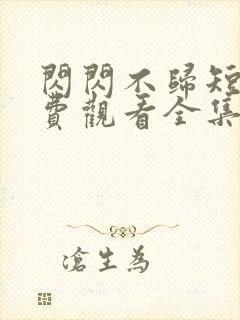 閃閃不歸短
費觀看全集
滄生為